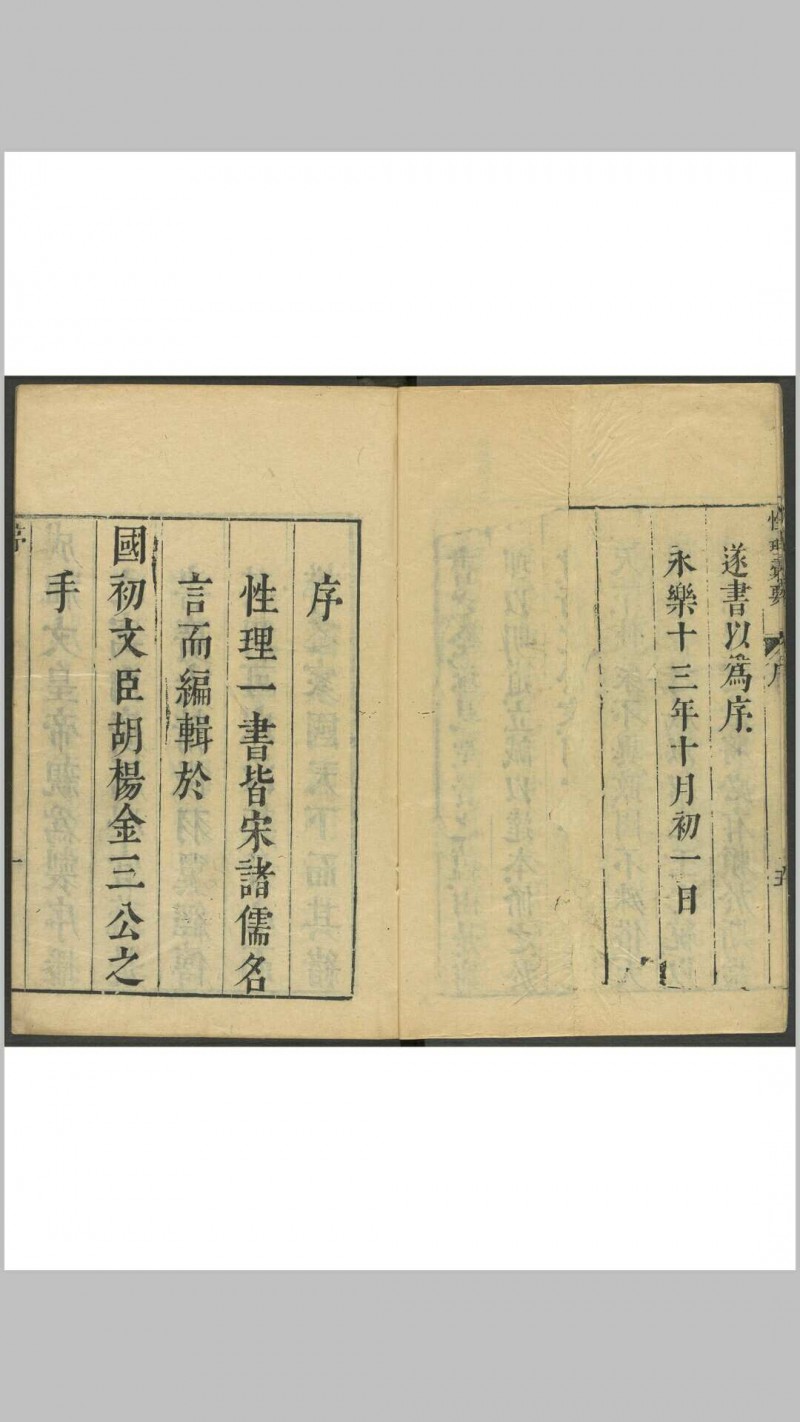 遂書以為序
永樂十三年十月初一日
序
性理一書皆宋諸儒名
言而編輯於
國初文臣胡楊金三公之
手